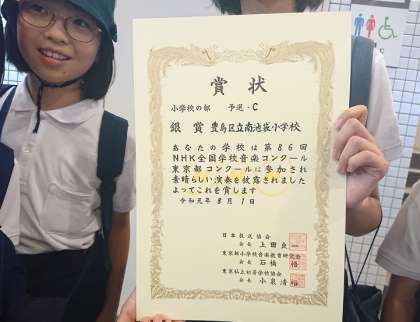 賞状
小学校の部　予選・C
銀賞 豊島区立南池袋小学校
あなたの学校は第86回
NHK全国学校音楽コンクール
東京都コンクールに参加され
素晴らしい演奏を披露されました
よってこれを賞します
令和元年8月1日
日本放送協会
会長 上田良一
東京都小学校音楽教育研究会
会長 石橋 悟
東京私立初等学校協会
会長 小泉清裕